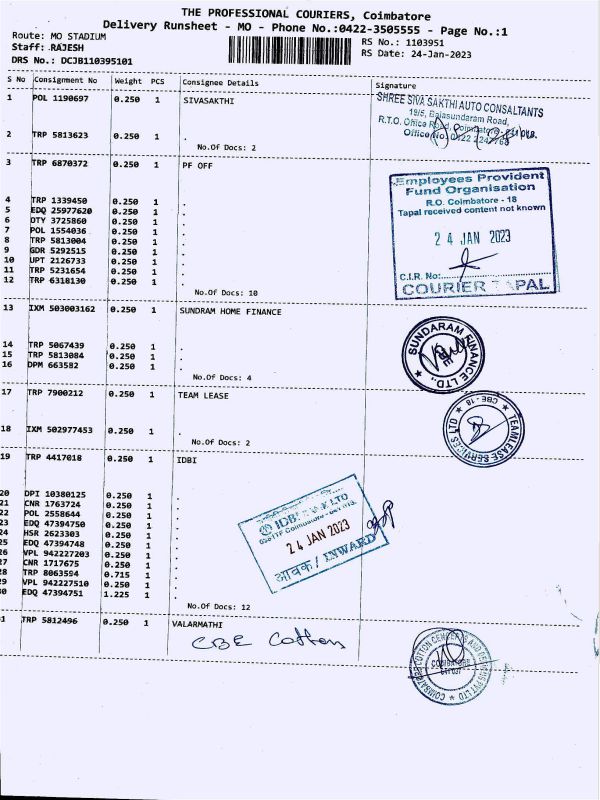 THE PROFESSIONAL COURIERS, Coimbatore
Delivery Runsheet - MO - Phone No.:0422-3505555 - Page No.:1
Route: MO STADIUM
RS No.: 1103951
Staff: RAJESH
RS Date: 24-Jan-2023
DRS No.: DCJB110395101
S No Consignment No Weight PCS Consignee Details Signature
1 POL 1190697 0.250 1 SIVASAKTHI
SHREE SIVA SAKTHI AUTO CONSALTANTS
19/5, Balasundaram Road,
R.T.O. Office Road, Coimbatore
Office No. 0422
2 TRP 5813623 0.250 1 .
No.Of Docs: 2
3 TRP 6870372 0.250 1 PF OFF
Employees Provident
Fund Organisation
R.O. Coimbatore - 18
Tapal received content not known
24 JAN 2023
C.I.R. No:
COURIER TAPAL
4 TRP 1339450 0.250 1 .
5 EDQ 25977620 0.250 1 .
6 DTY 3725860 0.250 1 .
7 POL 1554036 0.250 1 .
8 TRP 5813004 0.250 1 .
9 GDR 5292515 0.250 1 .
10 UPT 2126733 0.250 1 .
11 TRP 5231654 0.250 1 .
12 TRP 6318130 0.250 1 .
No.Of Docs: 10
13 IXM 503003162 0.250 1 SUNDRAM HOME FINANCE
SUNDARAM FINANCE LTD.,
14 TRP 5067439 0.250 1 .
15 TRP 5813084 0.250 1 .
16 DPM 663582 0.250 1 .
No.Of Docs: 4
17 TRP 7900212 0.250 1 TEAM LEASE
TEAMLEASE SERVICES LTD
CBE - 18
18 IXM 502977453 0.250 1 .
No.Of Docs: 2
19 TRP 4417018 0.250 1 IDBI
IDBI BANK LTD
24 JAN 2023
आवक / INWARD
20 DPI 10380125 0.250 1 .
21 CNR 1763724 0.250 1 .
22 POL 2558644 0.250 1 .
23 EDQ 47394750 0.250 1 .
24 HSR 2623303 0.250 1 .
25 EDQ 47394748 0.250 1 .
26 VPL 942227203 0.250 1 .
27 CNR 1717675 0.250 1 .
28 TRP 8063594 0.715 1 .
29 VPL 942227510 0.250 1 .
30 EDQ 47394751 1.225 1 .
No.Of Docs: 12
31 TRP 5812496 0.250 1 VALARMATHI
CBE Cotton